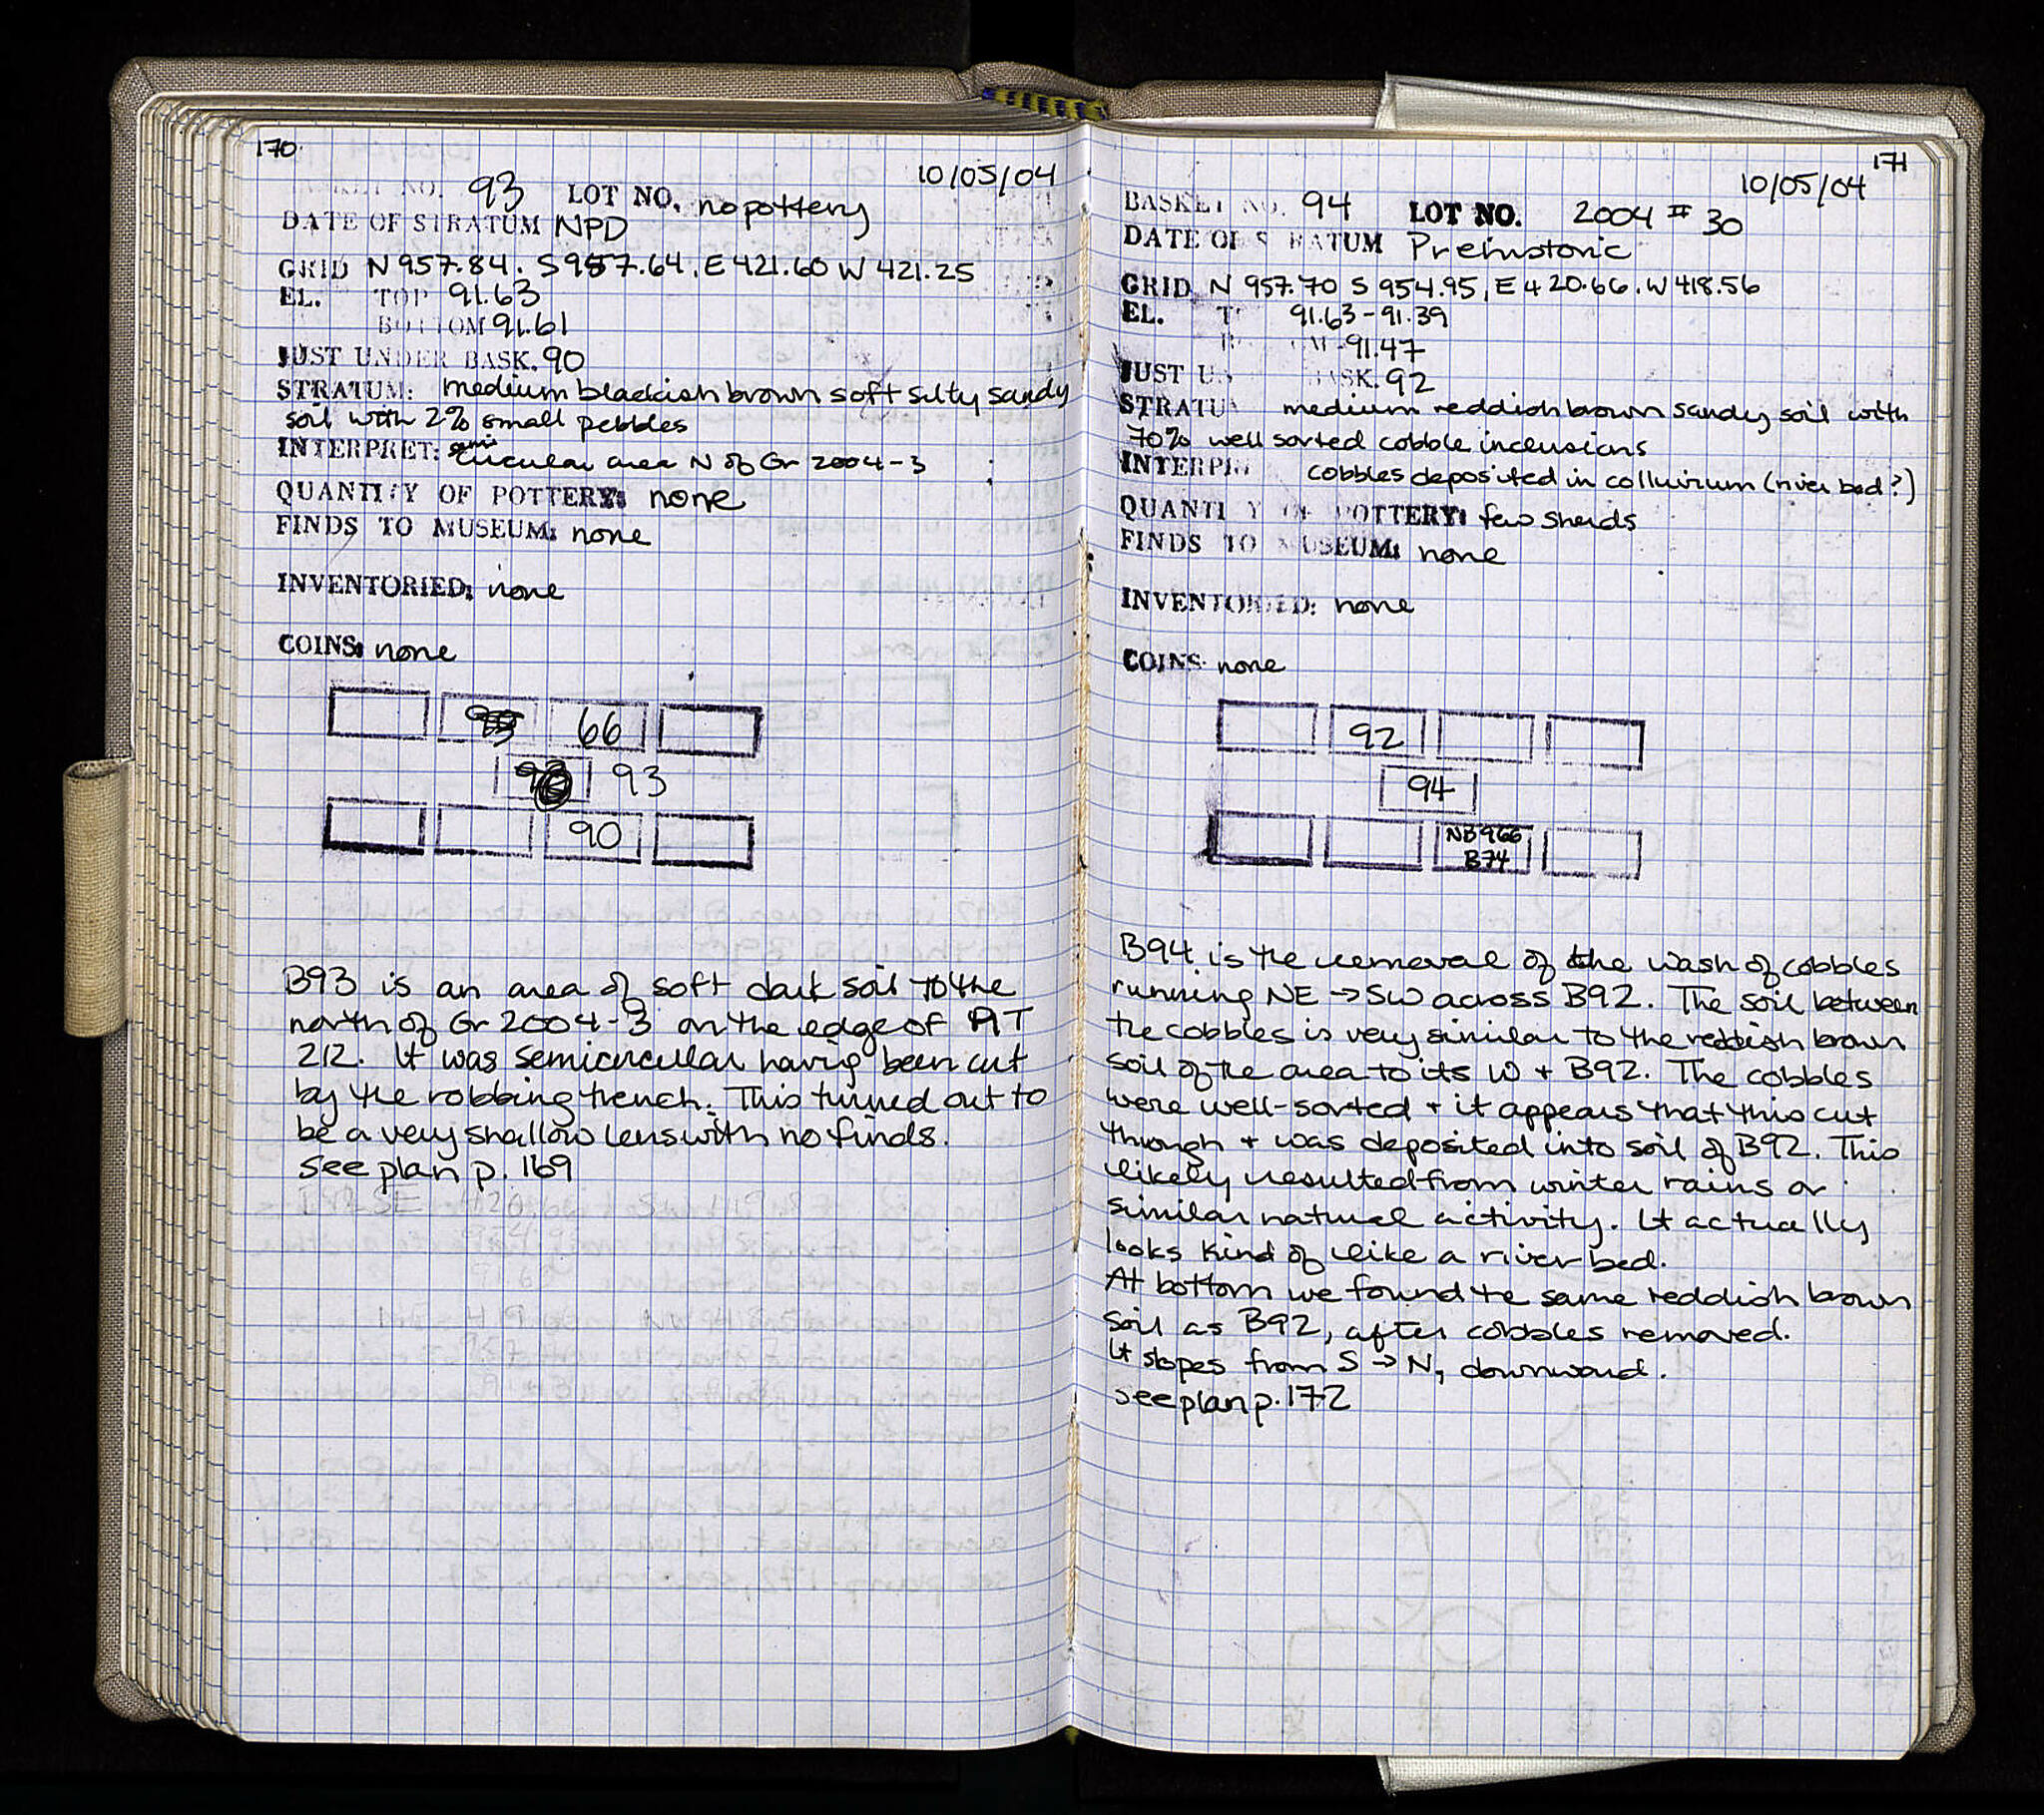 170
10/05/04
BASKET NO. 93 LOT NO. no pottery
DATE OF STRATUM NPD
GRID N 957.84. S 957.64, E 421.60 W 421.25
EL. TOP 91.63
BOTTOM 91.61
JUST UNDER BASK. 90
STRATUM: medium blackish brown soft silty sandy
soil with 2% small pebbles
INTERPRET: semi circular area N of Gr 2004-3
QUANTITY OF POTTERY: none
FINDS TO MUSEUM: none
INVENTORIED: none
COINS: none
66
93
90
B93 is an area of soft dark soil to the
north of Gr 2004-3 on the edge of RT
212. It was semicircular having been cut
by the robbing trench. This turned out to
be a very shallow lens with no finds.
see plan p. 169
171
10/05/04
BASKET NO. 94 LOT NO. 2004 # 30
DATE OF STRATUM Prehistoric
GRID N 957.70 S 954.95, E 420.66. W 418.56
EL. T 91.63-91.39
91.47
JUST U BASK. 92
STRATU medium reddish brown sandy soil with
70% well sorted cobble inclusions
INTERPR cobbles deposited in colluvium (river bed?)
QUANTITY OF POTTERY: few sherds
FINDS TO MUSEUM: none
INVENTORIED: none
COINS none
92
94
NB966
B74
B94 is the removal of the wash of cobbles
running NE → SW across B92. The soil between
the cobbles is very similar to the reddish brown
soil of the area to its W + B92. The cobbles
were well-sorted + it appears that this cut
through + was deposited into soil of B92. This
likely resulted from winter rains or
similar natural activity. It actually
looks kind of like a river bed.
At bottom we found the same reddish brown
soil as B92, after cobbles removed.
It slopes from S → N, downward.
see plan p. 172